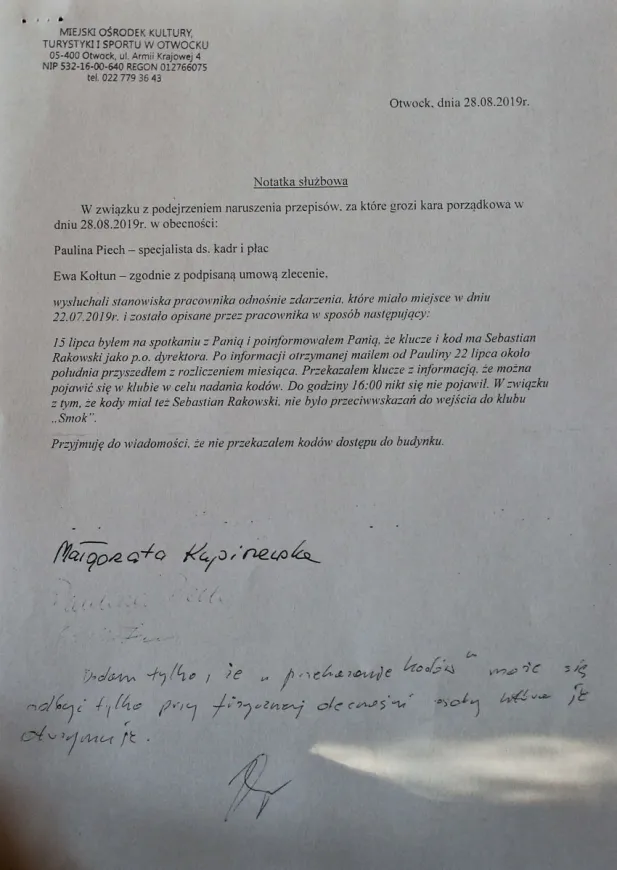 MIEJSKI OŚRODEK KULTURY,
TURYSTYKI I SPORTU W OTWOCKU
05-400 Otwock, ul. Armii Krajowej 4
NIP 532-16-00-640 REGON 012766075
tel. 022 779 36 43
Otwock, dnia 28.08.2019r.
Notatka służbowa
W związku z podejrzeniem naruszenia przepisów, za które grozi kara porządkowa w
dniu 28.08.2019r. w obecności:
Paulina Piech – specjalista ds. kadr i płac
Ewa Kołtun – zgodnie z podpisaną umową zlecenie,
wysłuchali stanowiska pracownika odnośnie zdarzenia, które miało miejsce w dniu
22.07.2019r. i zostało opisane przez pracownika w sposób następujący:
15 lipca byłem na spotkaniu z Panią i poinformowałem Panią, że klucze i kod ma Sebastian
Rakowski jako p.o. dyrektora. Po informacji otrzymanej mailem od Pauliny 22 lipca około
południa przyszedłem z rozliczeniem miesiąca. Przekazałem klucze z informacją, że można
pojawić się w klubie w celu nadania kodów. Do godziny 16:00 nikt się nie pojawił. W związku
z tym, że kody miał też Sebastian Rakowski, nie było przeciwwskazań do wejścia do klubu
„Smok”.
Przyjmuję do wiadomości, że nie przekazałem kodów dostępu do budynku.
Małgorzata Kupiszewska
Paulina Piech
Dodam tylko, że „przekazanie kodów” może się
odbyć tylko przy fizycznej obecności osoby która je
otrzymuje.